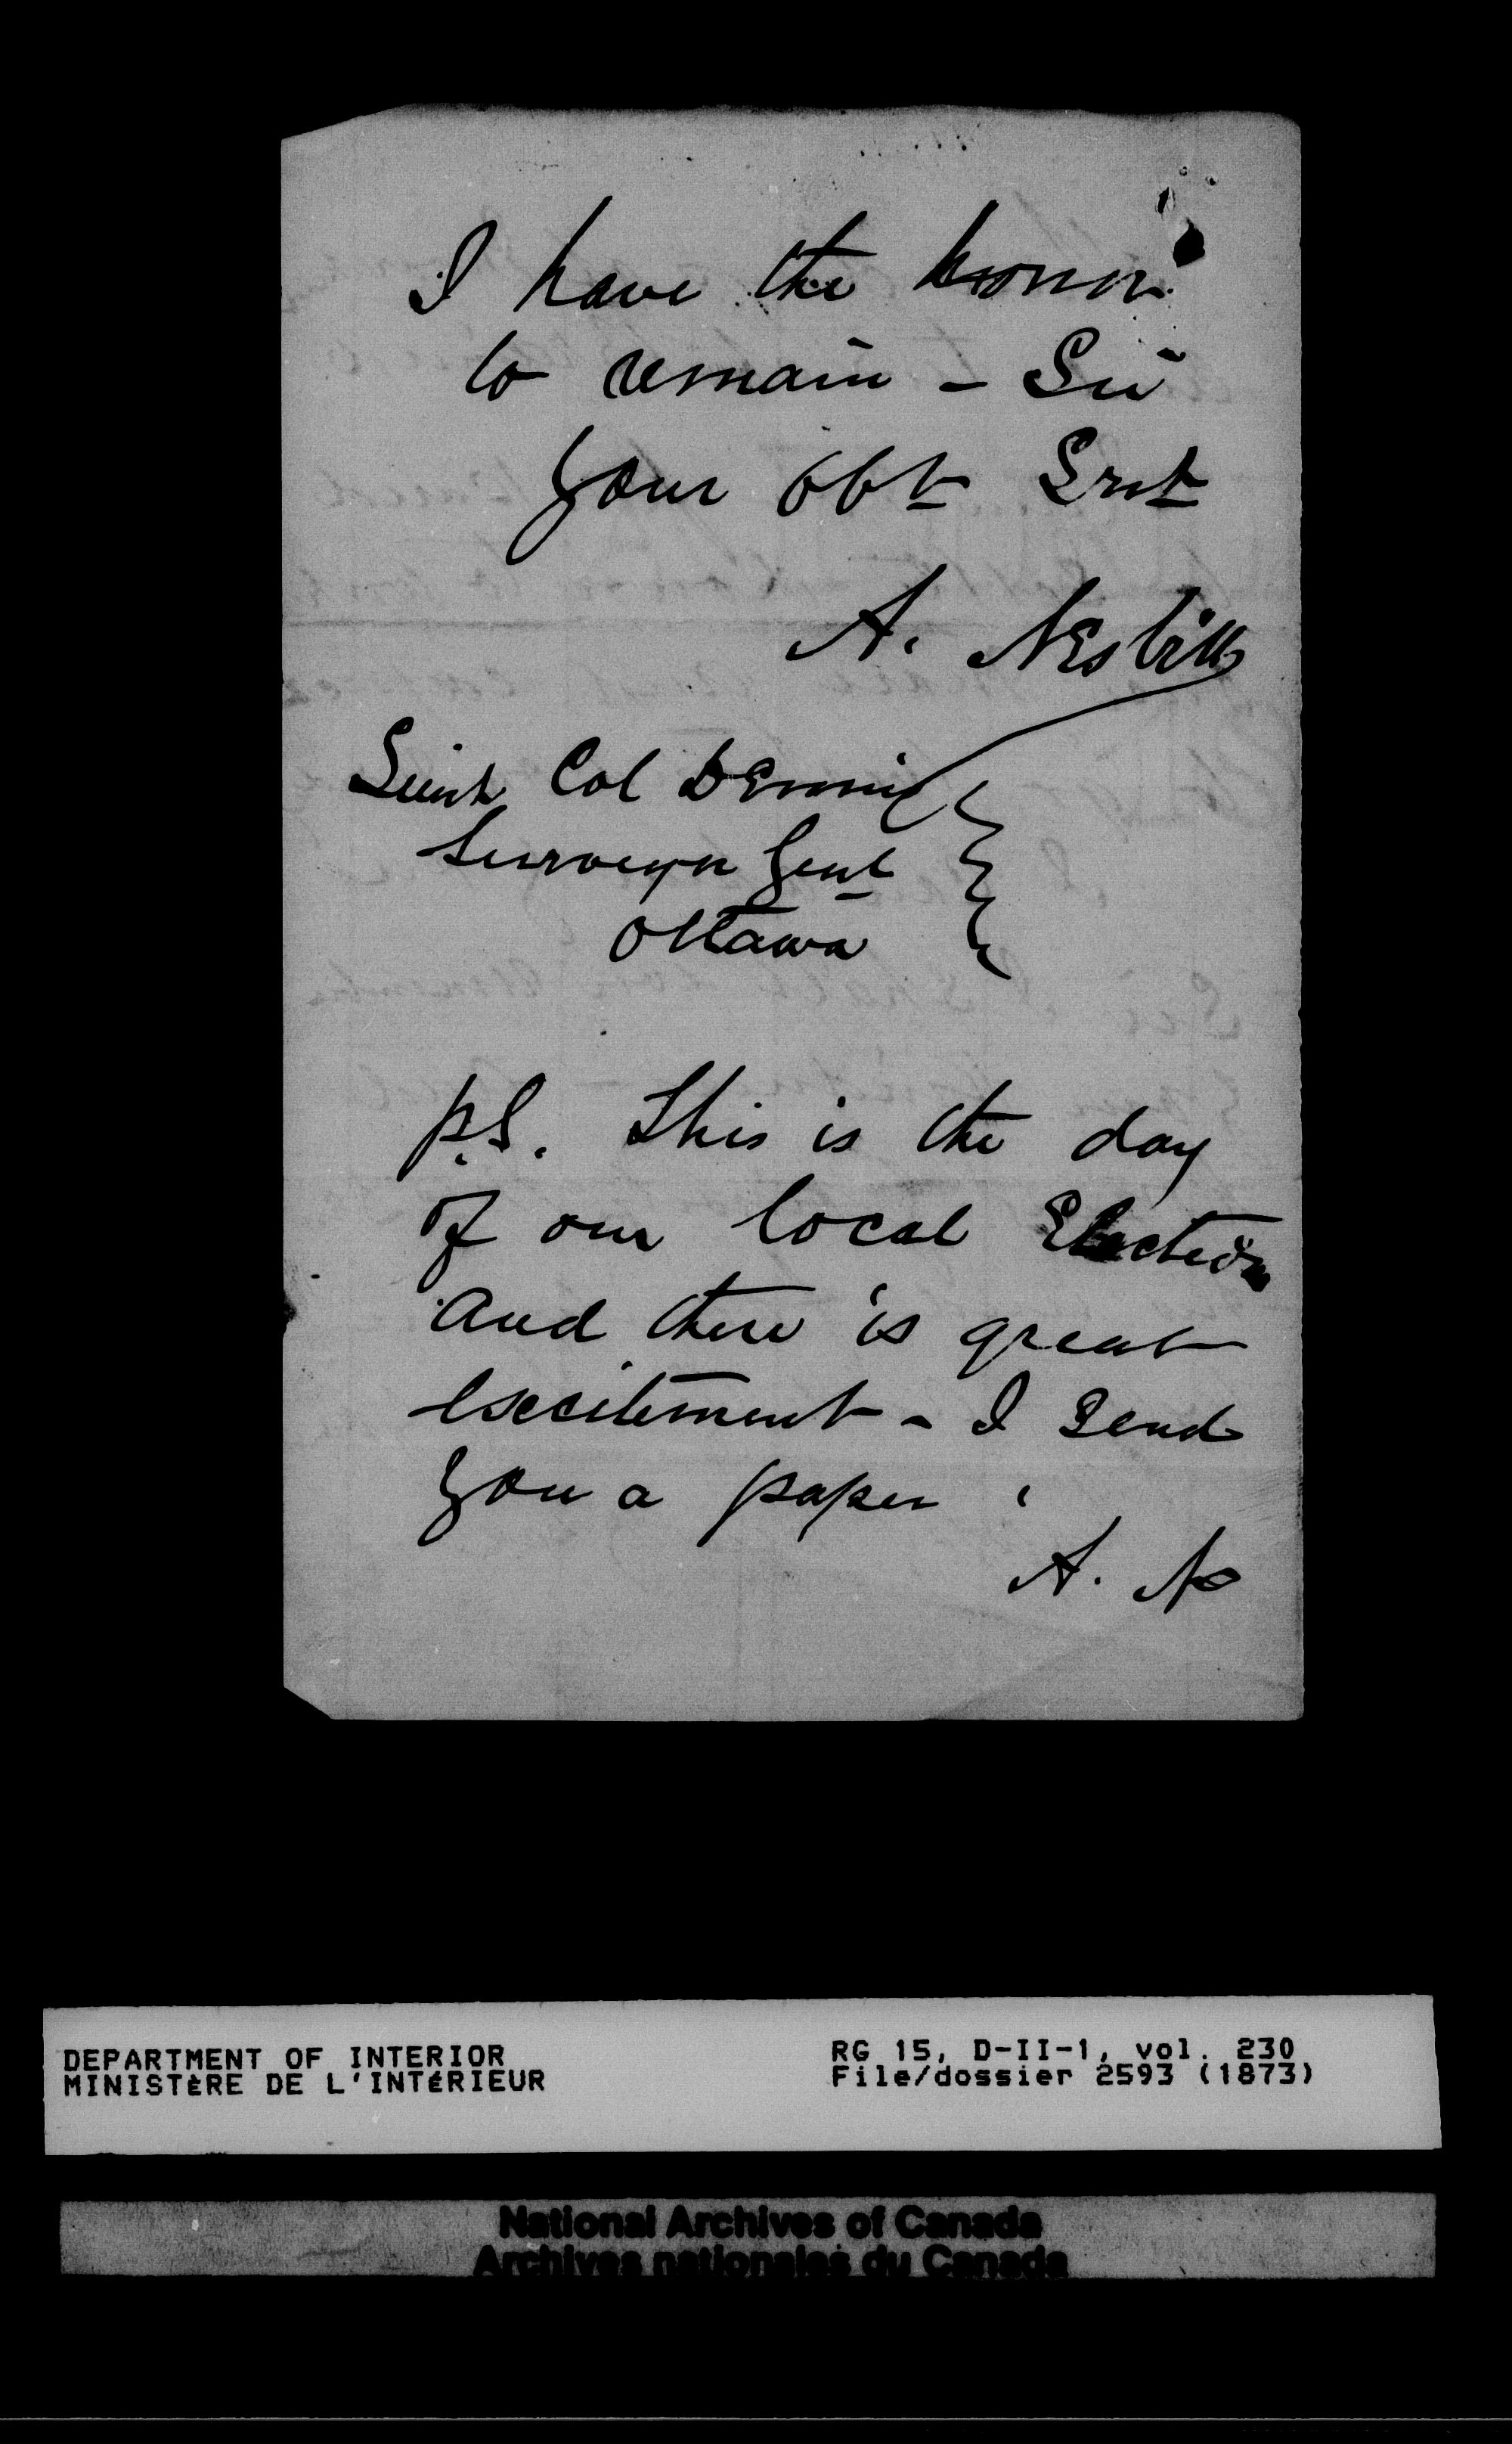 I have the honor
to remain - Sir
your obt Srvt
A. Nesbitt
Lieut Col Dennis
Surveyor Genl
Ottawa
P.S. This is the day
of our local Election
and there is great
excitement - I send
you a paper.
A. N
DEPARTMENT OF INTERIOR
MINISTÈRE DE L'INTÉRIEUR
RG 15, D-II-1, vol. 230
File/dossier 2593 (1873)
National Archives of Canada
Archives nationales du Canada